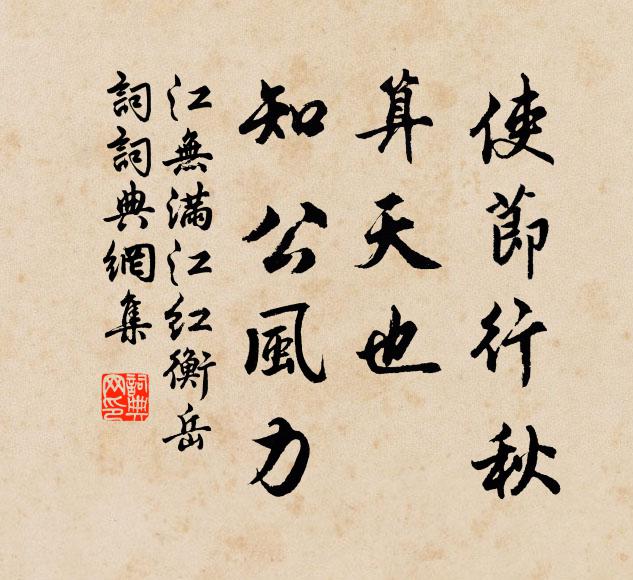 使節行秋
算天也
知公風力
江無滿江紅衡岳
詞詞典網集
詞典網印